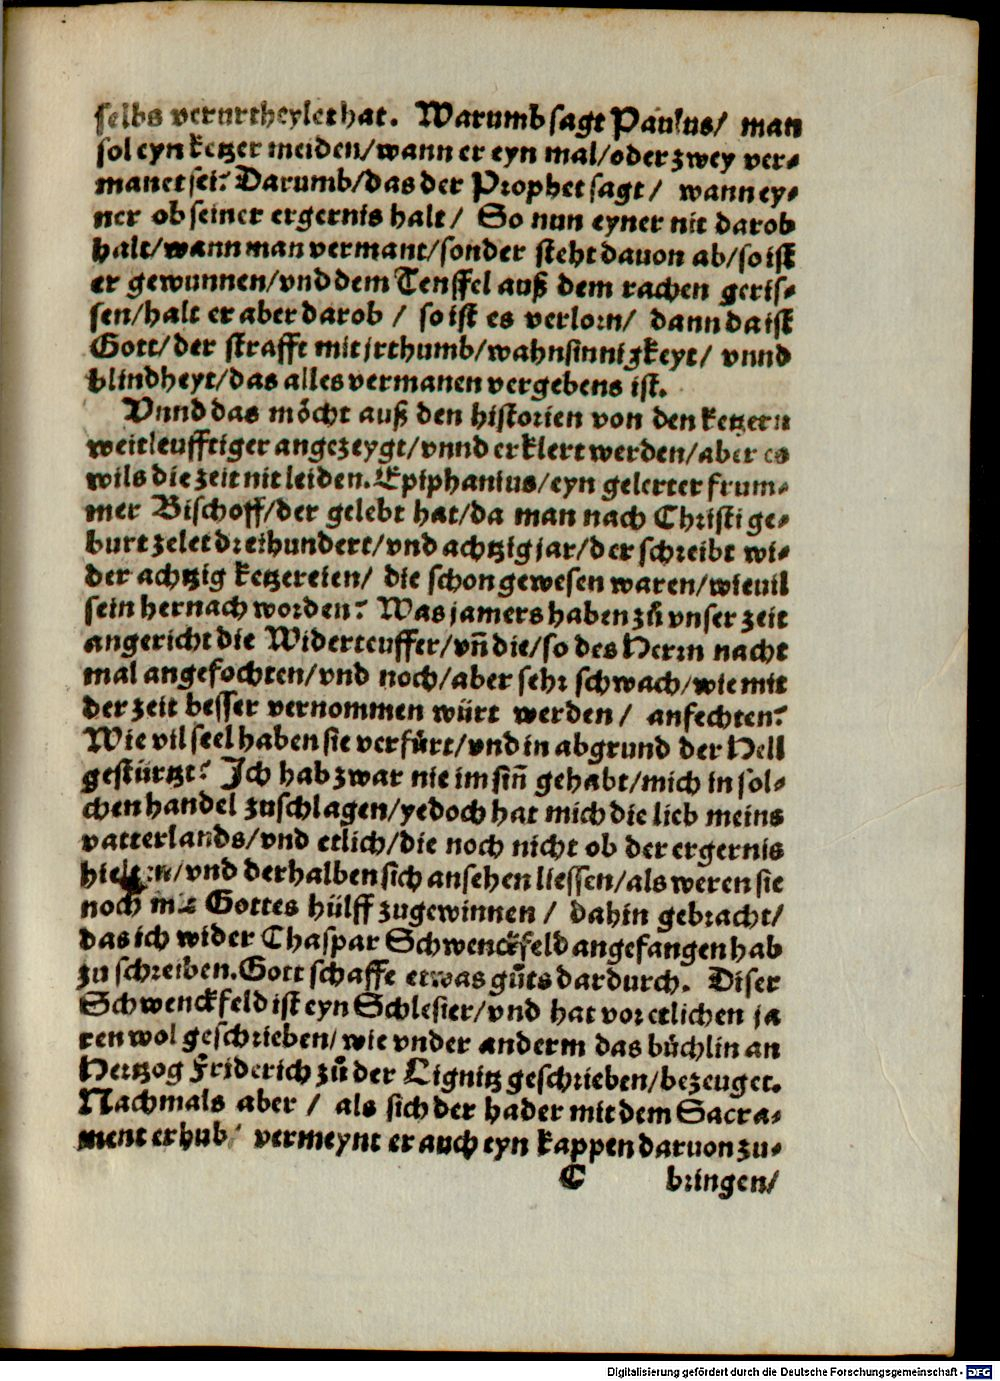 selbs verurtheylet hat. Warumb sagt Paulus/ man
sol eyn ketzer meiden/wann er eyn mal/oder zwey ver⸗
manet sei? Darumb/das der Prophet sagt/ wann ey⸗
ner ob seiner ergernis halt/ So nun eyner nit darob
halt/wann man vermant/sonder steht dauon ab/so ist
er gewunnen/vnd dem Teuffel auß dem rachen geris⸗
sen/halt er aber darob / so ist es verlorn/ dann da ist
Gott/der strafft mit jrthumb/wahnsinnigkeyt/ vnnd
blindheyt/das alles vermanen vergebens ist.
Vnnd das möcht auß den historien von den ketzern
weitleufftiger angezeygt/vnnd erklert werden/aber es
wils die zeit nit leiden. Epiphanius/eyn gelerter frum⸗
mer Bischoff/der gelebt hat/da man nach Christi ge⸗
burt zelet dreihundert/vnd achtzig jar/der schreibt wi⸗
der achtzig ketzereien/ die schon gewesen waren/wieuil
sein hernach worden? Was jamers haben zů vnser zeit
angericht die Widerteuffer/vñ die/so des Herrn nacht
mal angefochten/vnd noch/aber sehr schwach/wie mit
der zeit besser vernommen würt werden/ anfechten?
Wie vil seel haben sie verfürt/vnd in abgrund der Hell
gestürtzt? Ich hab zwar nie im siñ gehabt/mich in sol⸗
chen handel zuschlagen/yedoch hat mich die lieb meins
vatterlands/vnd etlich/die noch nicht ob der ergernis
hielten/vnd derhalben sich ansehen liessen/als weren sie
noch mit Gottes hülff zugewinnen / dahin gebracht/
das ich wider Chaspar Schwenckfeld angefangen hab
zu schreiben. Gott schaffe etwas gůts dardurch. Diser
Schwenckfeld ist eyn Schlesier/vnd hat vor etlichen ja
ren wol geschrieben/wie vnder anderm das bůchlin an
Hertzog Friderich zů der Lignitz geschrieben/bezeuget.
Nachmals aber / als sich der hader mit dem Sacra⸗
ment erhub/ vermeynt er auch eyn kappen daruon zu⸗
C bringen/
Digitalisierung gefördert durch die Deutsche Forschungsgemeinschaft - DFG